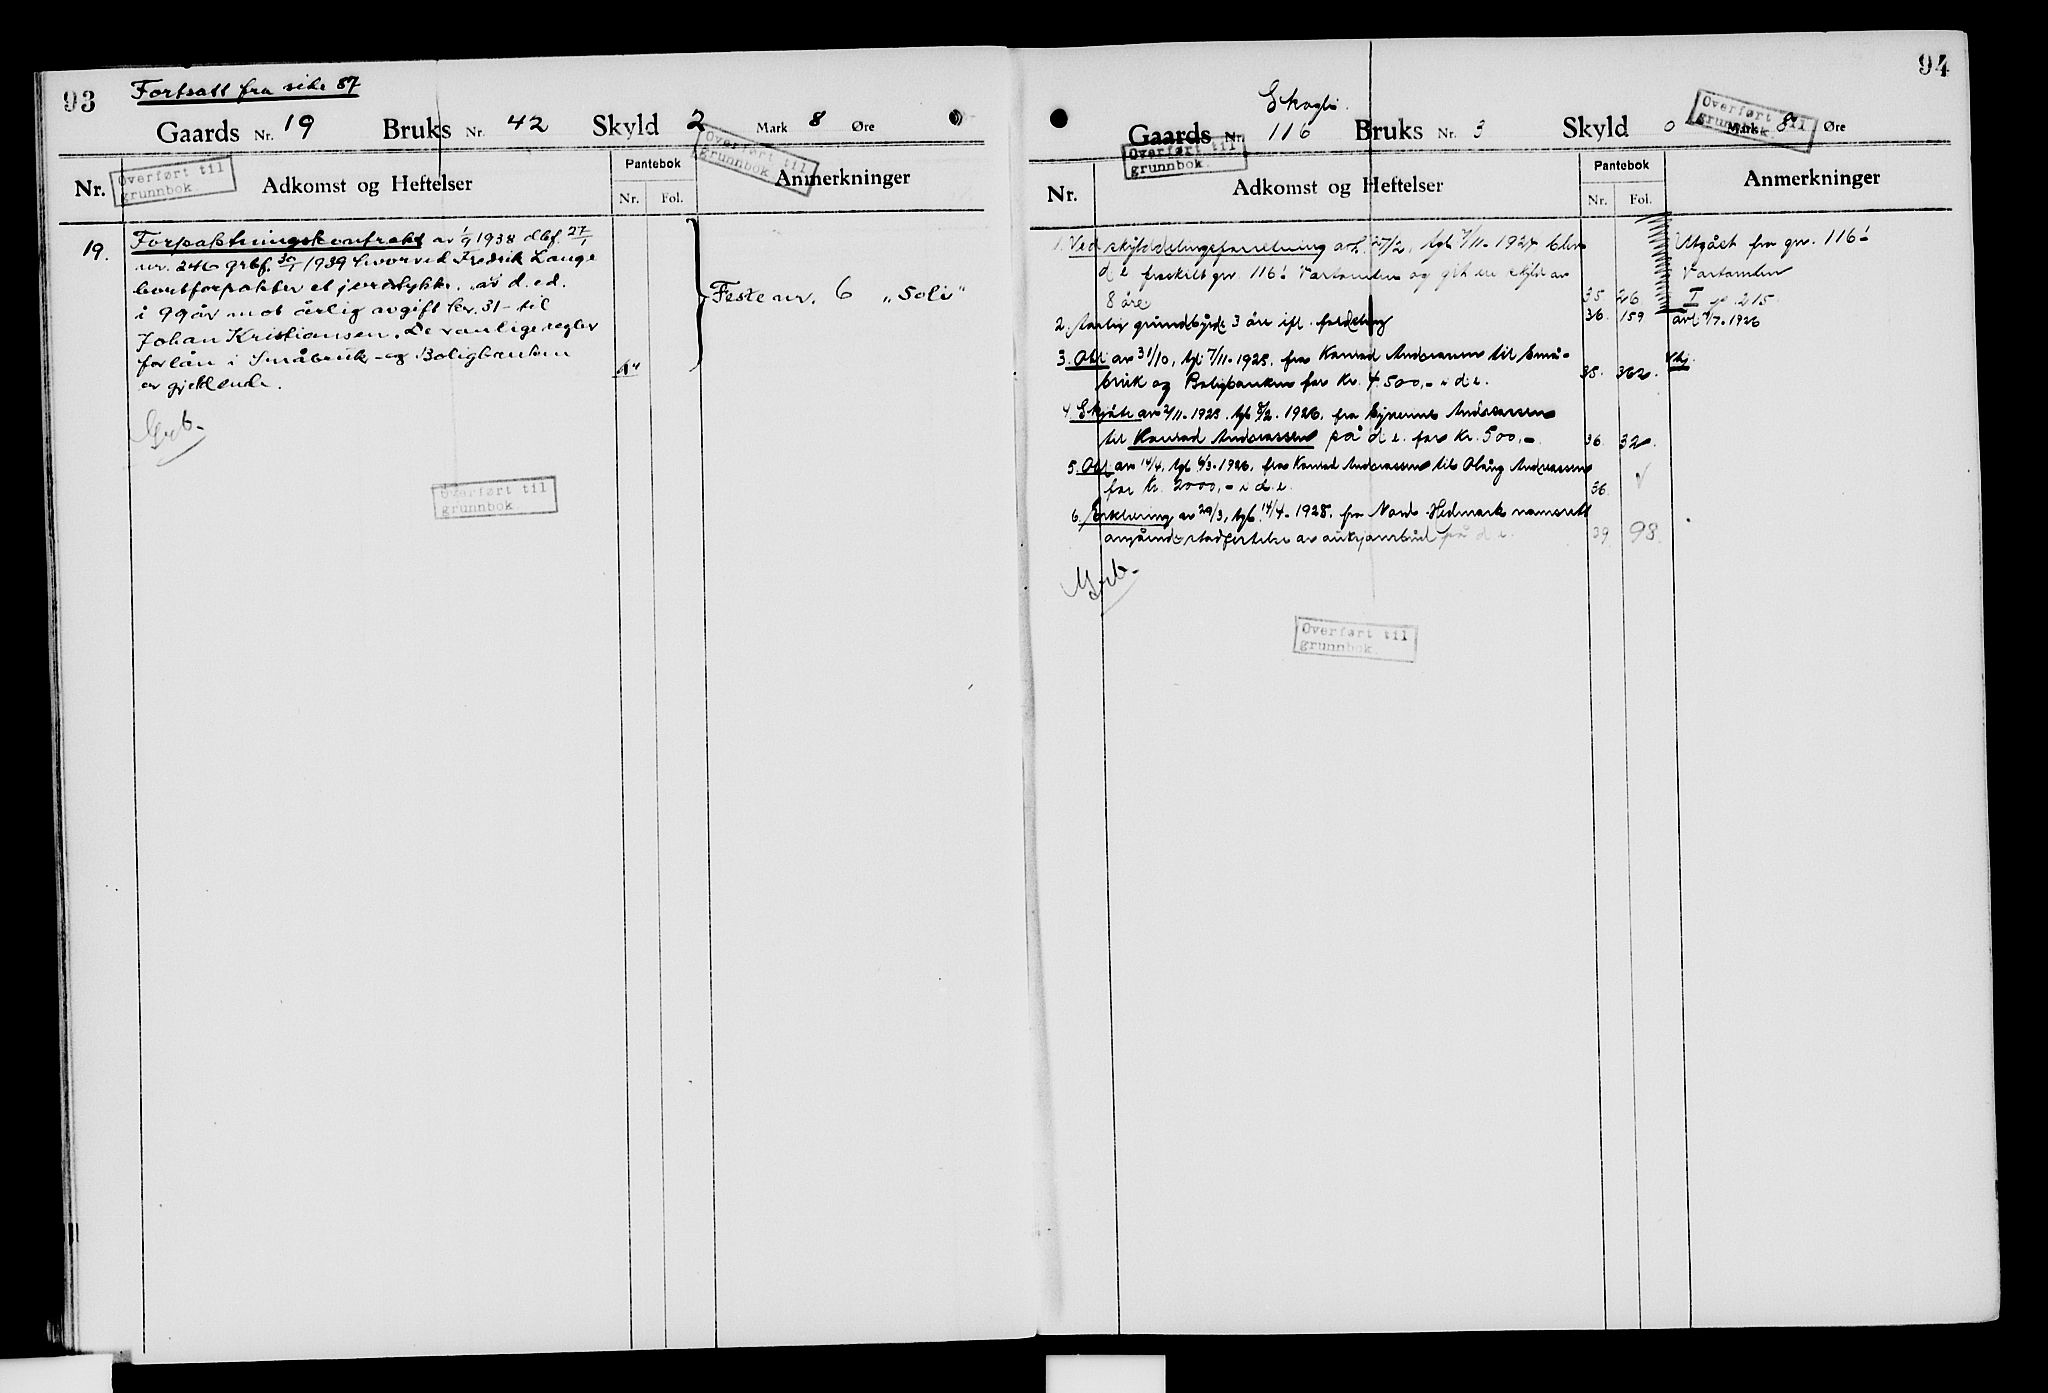 93
Fortsatt fra side 87
Gaards Nr. 19 Bruks Nr. 42 Skyld 2 Mark 8 Øre
Overført til
grunnbok.
Overført til
grunnbok.
Nr. Adkomst og Heftelser Pantebok Nr. Fol. Anmerkninger
19. Forpaktningskontrakt av 1/9 1938 dbf. 27/1
nr. 246 grbf. 30/1 1939 hvorved Fredrik Lange
bortforpakter et jordstykke av d. ed.
i 99 år mot årlig avgift kr. 31- til
Johan Kristiansen. De vanlige regler
for lån i Småbruk- og Boligbanken
er gjeldende.
Feste nr. 6 „Soli"
Grb.
Overført til
grunnbok.
94
Skogli.
Gaards Nr. 116 Bruks Nr. 3 Skyld 0 Mark 8 Øre
Overført til
grunnbok.
Overført til
grunnbok.
Nr. Adkomst og Heftelser Pantebok Nr. Fol. Anmerkninger
1. Ved skylddelingsforretning avh. 27/2, tgl. 7/11-1924 blev
d. e. fraskilt gnr. 116.1 Vartomten og git en skyld av
8 øre 35 26
Utgået fra gnr. 116.1
Vartomten
I 215.
2. Aarlig grundbyrde 3 øre ifl. fordeling 36. 159 avl. 7-1926
3. Obl. av 31/10, tgl. 7/11-1925. fra Konrad Andreassen til Små-
bruk og Boligbanken for kr. 4.500,- i d. e. 35. 362.
4. Skjøte av 2/11-1925. tgl. 2. 1926. fra Andreassen
til Konrad Andreassen på d. e. for kr. 500,- 36. 32.
5. Obl. av 14/4, tgl. /3-1926. fra Konrad Andreassen til Andreassen
for kr. 2000,- i d. e. 36.
6. Erklæring av 29/3, tgl. 14/4-1928. fra Nord-Hedmark namsrett
angående stadfestelse av auksjonsbud på d. e. 39 98.
Grb.
Overført til
grunnbok.